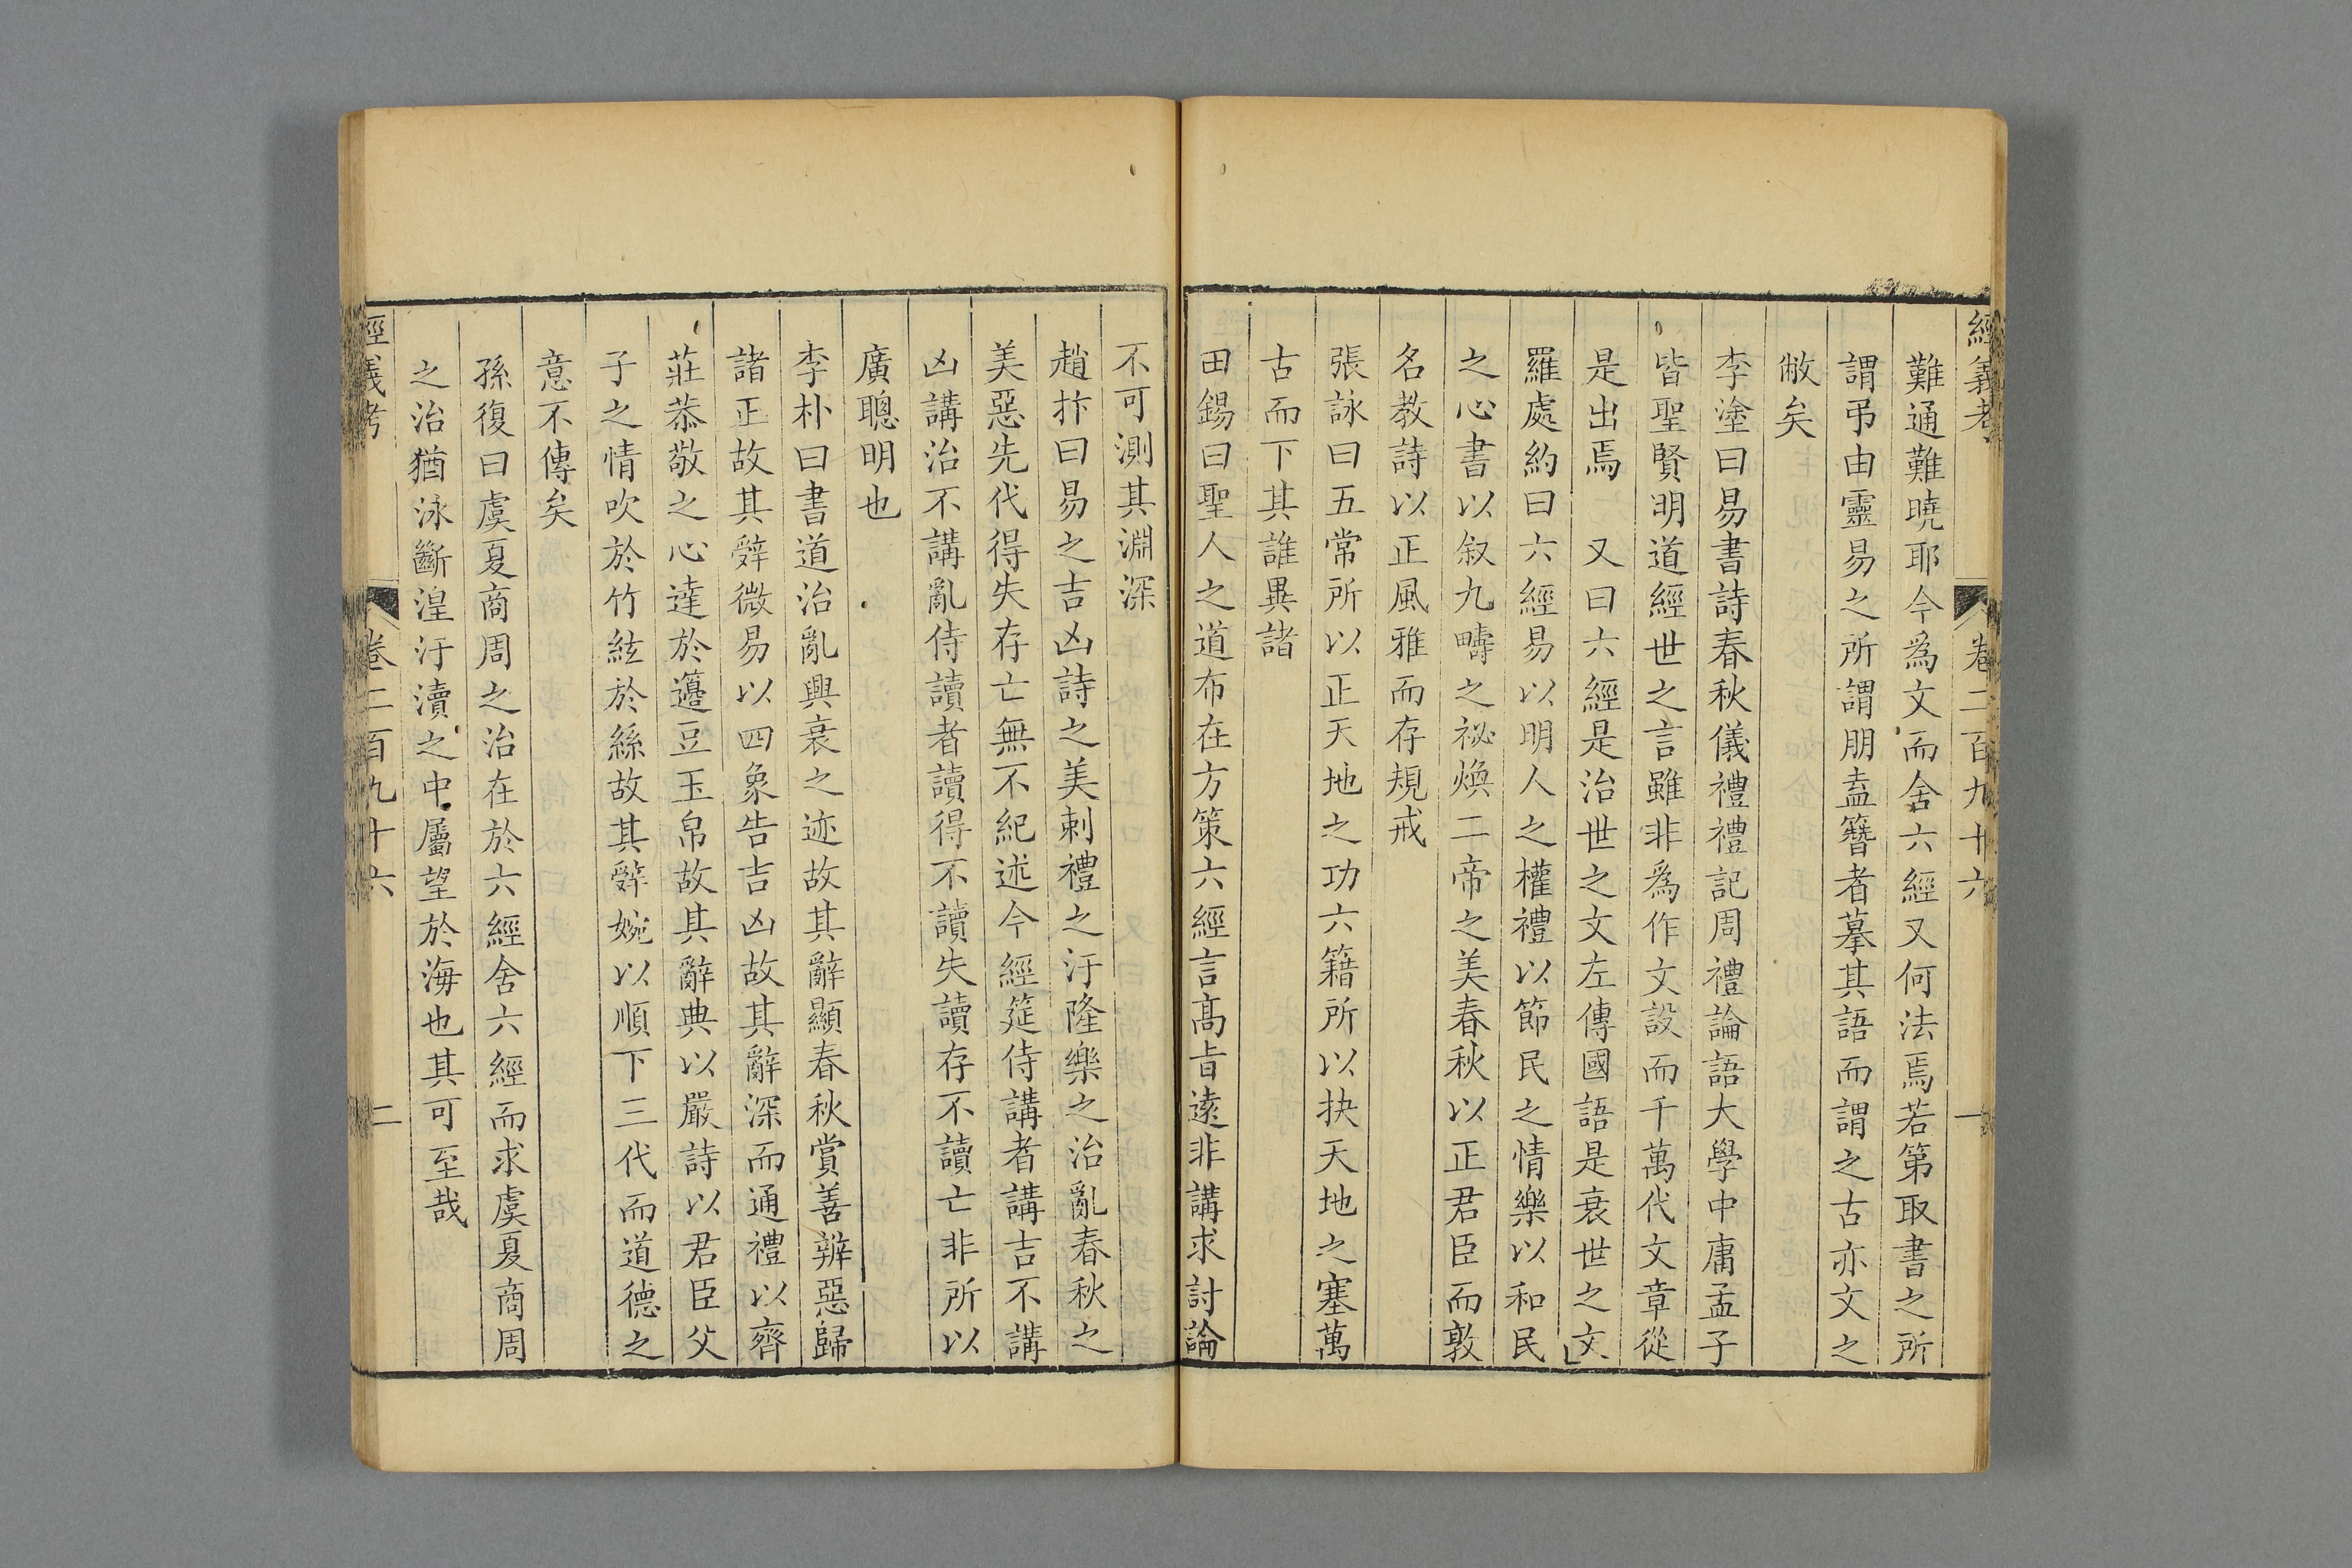 經義考 卷二百九十六 一
難通難曉耶今爲文而舍六經又何法焉若第取書之所
謂弔由靈易之所謂朋盍簪者摹其語而謂之古亦文之
敝矣
李塗曰易書詩春秋儀禮禮記周禮論語大學中庸孟子
皆聖賢明道經世之言雖非爲作文設而千萬代文章從
是出焉 又曰六經是治世之文左傳國語是衰世之文
羅處約曰六經易以明人之權禮以節民之情樂以和民
之心書以叙九疇之祕煥二帝之美春秋以正君臣而敦
名教詩以正風雅而存規戒
張詠曰五常所以正天地之功六籍所以抉天地之塞萬
古而下其誰異諸
田錫曰聖人之道布在方策六經言高旨遠非講求討論
不可測其淵深
趙抃曰易之吉凶詩之美刺禮之汙隆樂之治亂春秋之
美惡先代得失存亡無不紀述今經筵侍講者講吉不講
凶講治不講亂侍讀者讀得不讀失讀存不讀亡非所以
廣聰明也
李朴曰書道治亂興衰之迹故其辭顯春秋賞善辨惡歸
諸正故其辤微易以四象告吉凶故其辭深而通禮以齊
莊恭敬之心達於籩豆玉帛故其辭典以嚴詩以君臣父
子之情吹於竹絃於絲故其辤婉以順下三代而道德之
意不傳矣
孫復曰虞夏商周之治在於六經舍六經而求虞夏商周
之治猶泳斷湟汙瀆之中屬望於海也其可至哉
經義考 卷二百九十六 二